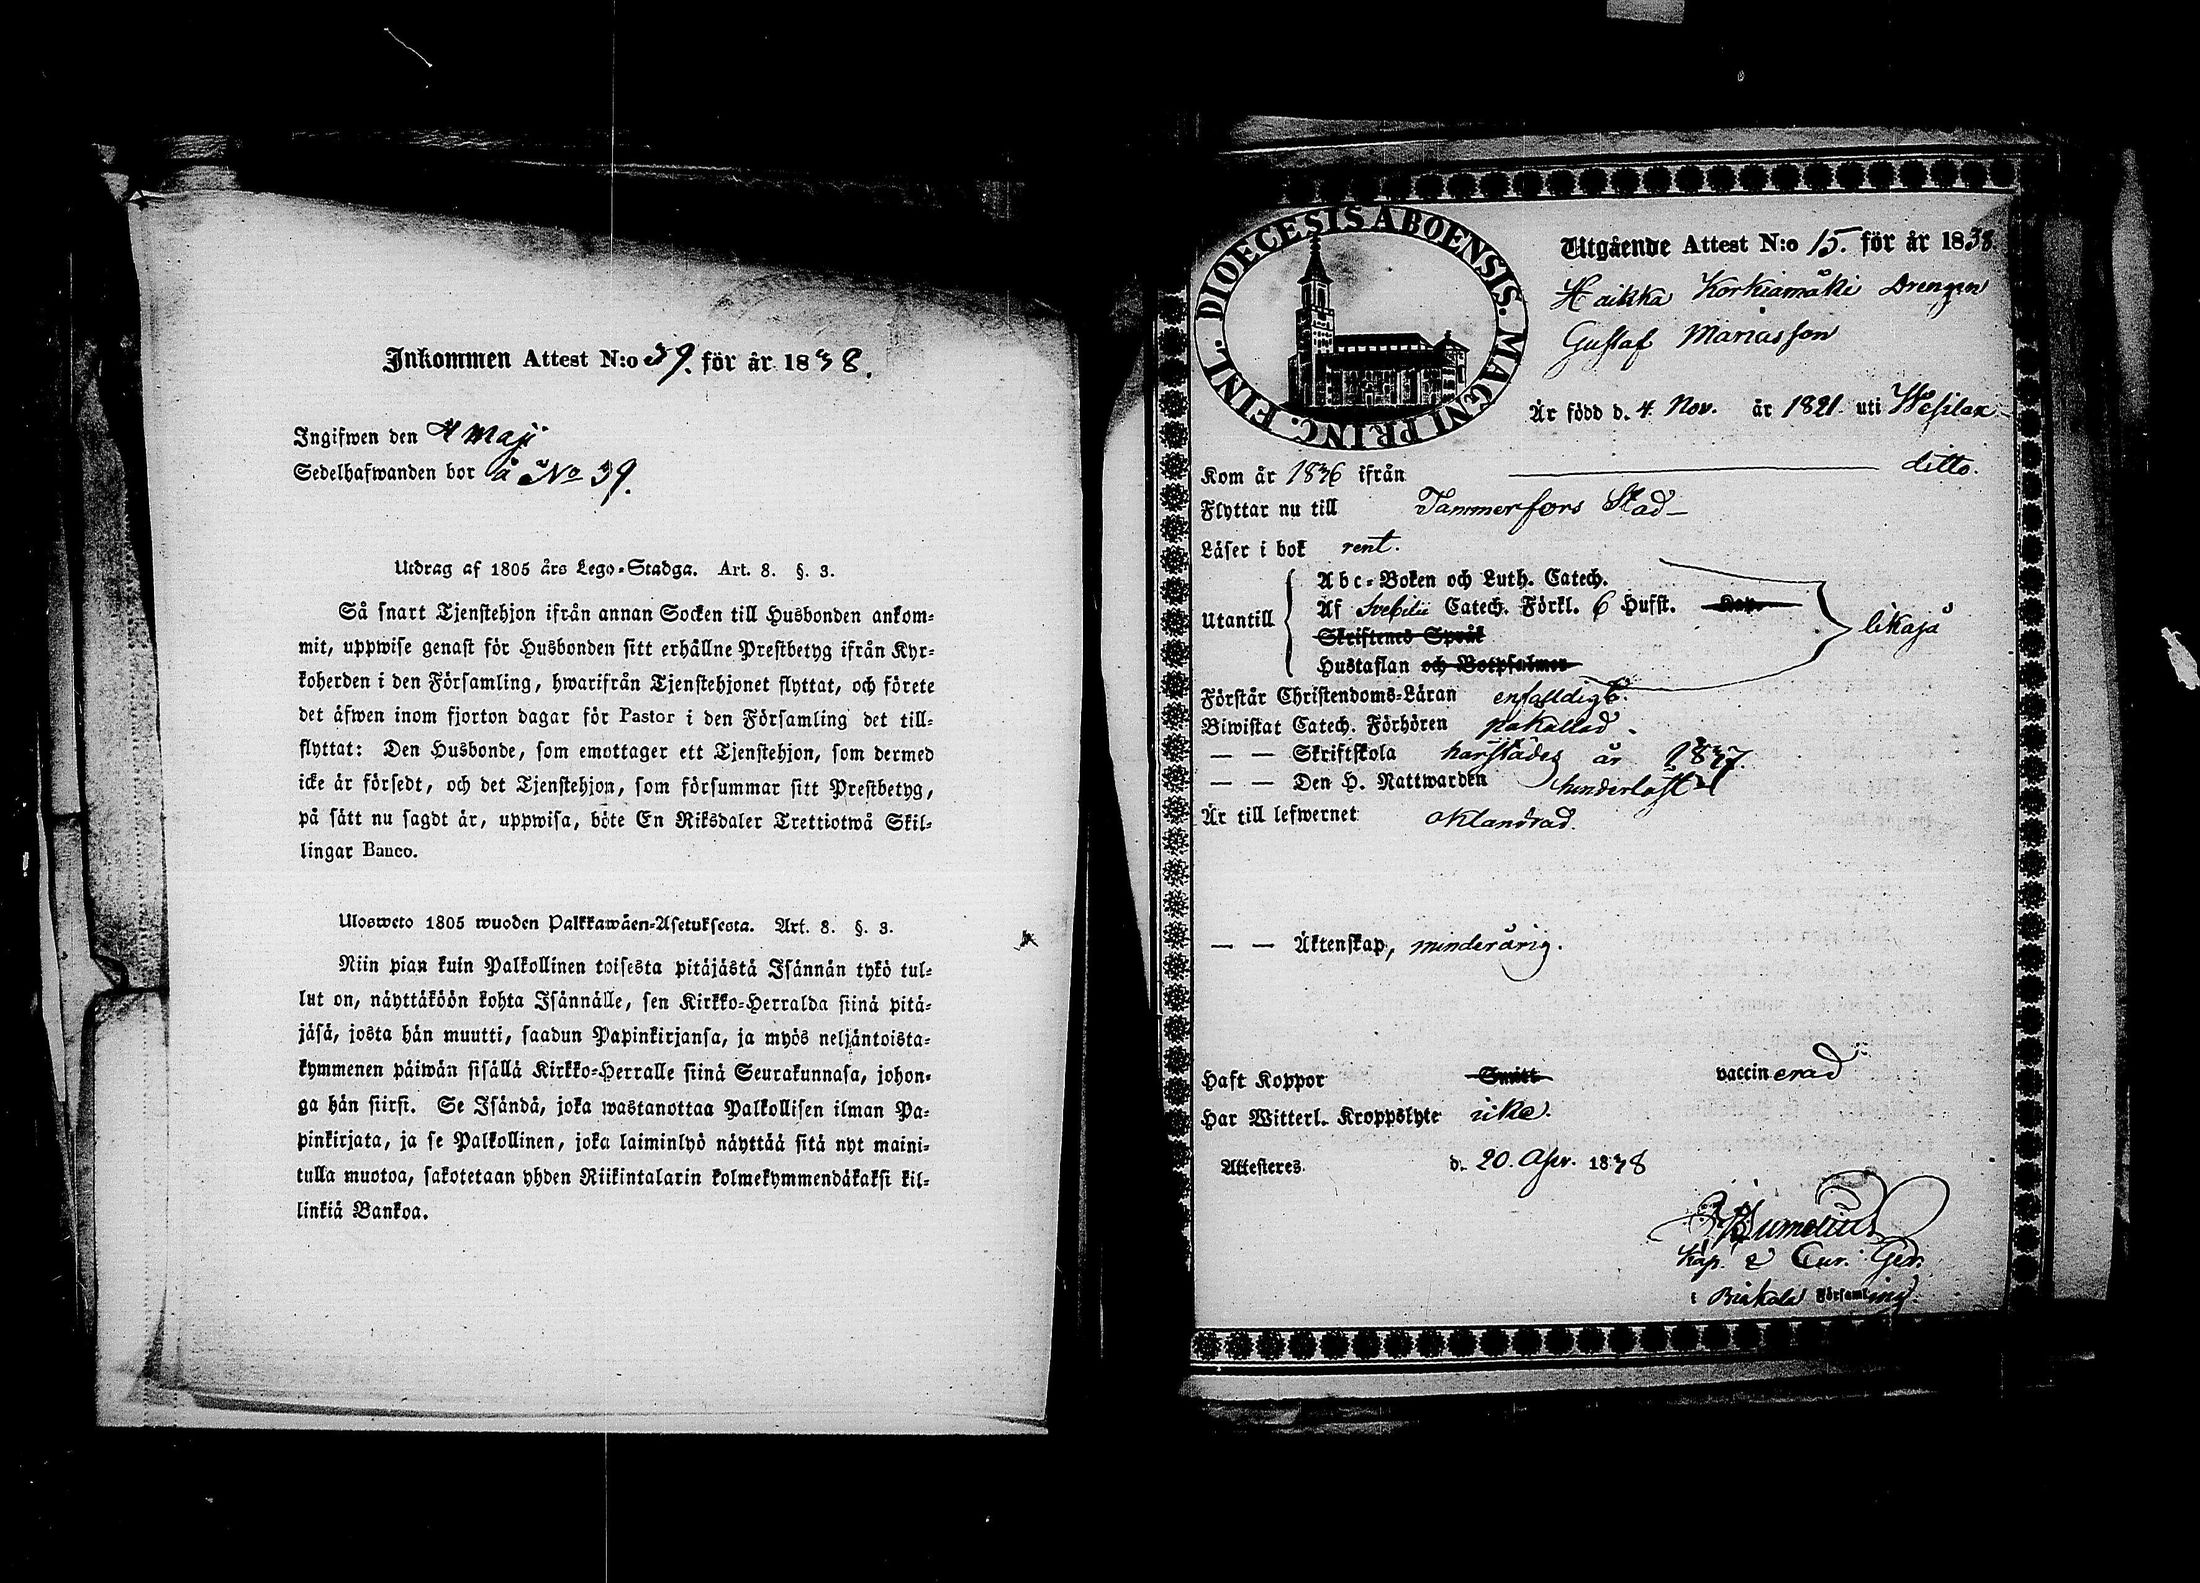 Inkommen Attest N:o 39. för år 1838.
Ingifwen den 4 Maji
Sedelhafwanden bor å No 39.
Utdrag af 1805 års Lego-Stadga. Art. 8. §. 3.
Så snart Tjenstehjon ifrån annan Socken till Husbonden ankom-
mit, uppwise genast för Husbonden sitt erhållne Prestbetyg ifrån Kyr-
koherden i den Församling, hwarifrån Tjenstehjonet flyttat, och förete
det äfwen inom fjorton dagar för Pastor i den Församling det till-
flyttat: Den Husbonde, som emottager ett Tjenstehjon, som dermed
icke är försedt, och det Tjenstehjon, som försummar sitt Prestbetyg,
på sätt nu sagdt är, uppwisa, böte En Riksdaler Trettiotwå Skil-
lingar Banco.
Ulosweto 1805 wuoden Palkkawäen-Asetuksesta. Art. 8. §. 3.
Niin pian kuin Palkollinen toisesta pitäjästä Isännän tykö tul-
lut on, näyttäköön kohta Isännälle, sen Kirkko-Herralda siinä pitä-
jäsä, josta hän muutti, saadun Papinkirjansa, ja myös neljäntoista-
kymmenen päiwän sisällä Kirkko-Herralle siinä Seurakunnasa, johon-
ga hän siirsi. Se Isändä, joka wastanottaa Palkollisen ilman Pa-
pinkirjata, ja se Palkollinen, joka laiminlyö näyttää sitä nyt maini-
tulla muotoa, sakotetaan yhden Riikintalarin kolmekymmendäkaksi kil-
linkiä Bankoa.
DIOECESIS ABOENSIS. MAGNI PRINC. FINL.
Utgående Attest N:o 15. för år 1838.
Haikka Korkiamäki Drengen
Gustaf Mariasson
Är född d. 4. Nov. år 1821. uti Wesilax
Kom år 1836 ifrån ditto.
Flyttar nu till Tammerfors Stad
Läser i bok rent.
Utantill
Abc-Boken och Luth. Catech.
Af Svebilii Catech. Förkl. 6 Hufst. Kap.
Skriftenes Språk
Hustaflan och Botpsalmer
likaså
Förstår Christendoms-Läran enfaldigt.
Biwistat Catech. Förhören påkallad.
— — Skriftskola härstädes år 1837.
— — Den H. Nattwarden hinderlöst
Är till lefwernet oklandrad.
— — Äktenskap, minderårig.
Haft Koppor Smitt vaccinerad
Har Witterl. Kroppslyte icke.
Attesteres d. 20. Apr. 1838
Kap. & Cur. Ger.
i Birkala Församling.